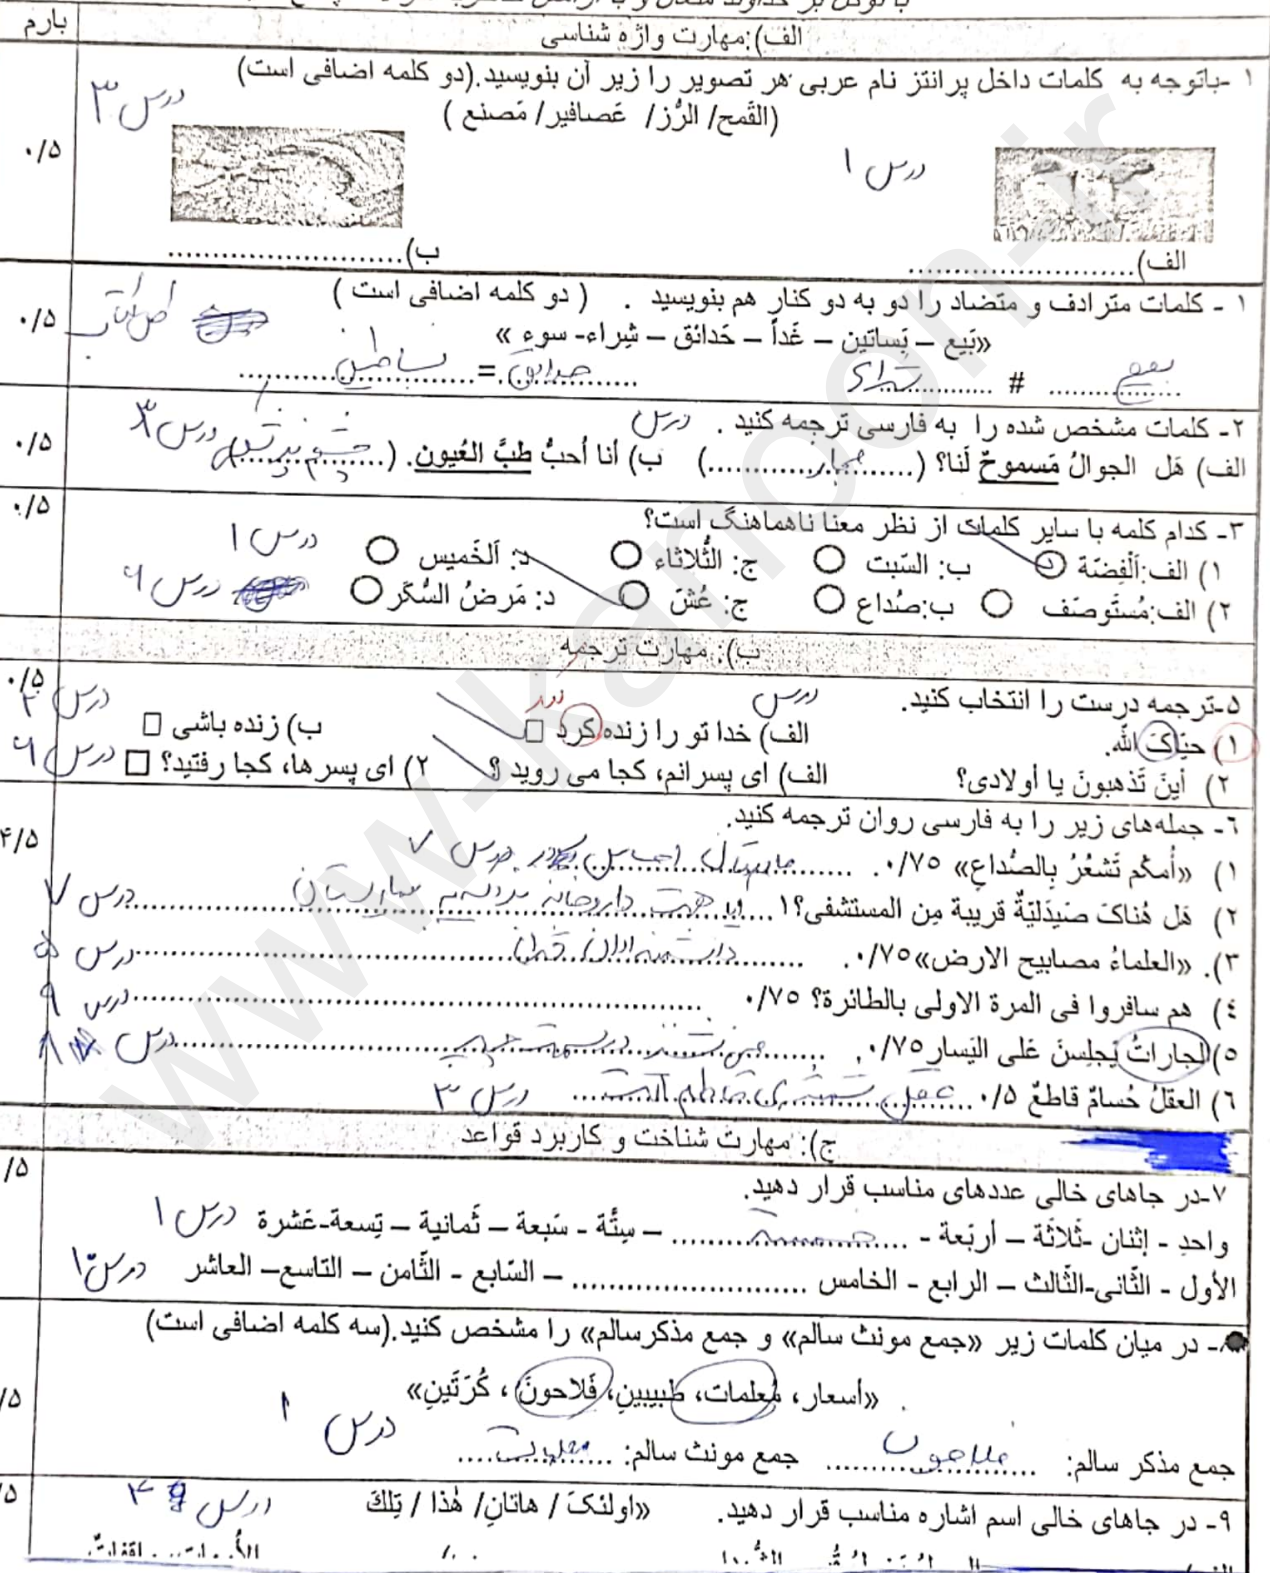 بارم
الف):مهارت واژه شناسی
۱ -باتوجه به کلمات داخل پرانتز نام عربی هر تصویر را زیر آن بنویسید.(دو کلمه اضافی است)
درس ۳
(القَمح/ الرُّز/ عَصافیر/ مَصنع )
۰/۵
درس ۱
الف)........................... ب)...........................
۱ - کلمات مترادف و متضاد را دو به دو کنار هم بنویسید . ( دو کلمه اضافی است )
۰/۵
«بَیع – بَساتین – غَداً – حَدائق – شِراء- سوء »
بیع # شراء حدائق = بساطین
۲- کلمات مشخص شده را به فارسی ترجمه کنید . درس
درس ۳
۰/۵
الف) هَل الجوالُ مَسموحٌ لَنا؟ (.....مجاز.....) ب) أنا أحبُّ طبَّ العُیون. (چشم پزشکی)
۳- کدام کلمه با سایر کلمات از نظر معنا ناهماهنگ است؟
۰/۵
۱) الف:اَلْفِضّة ب: السّبت ج: الثُّلاثاء د: اَلخَمیس درس ۱
۲) الف:مُستَوصَف ب:صُداع ج: عُشّ د: مَرَضُ السُّکَّر درس ۶
ب): مهارت ترجمه
۵-ترجمه درست را انتخاب کنید. درس
۰/۵
۱) حیّاکَ الله. الف) خدا تو را زنده کرد □ ب) زنده باشی □ درس ۲
۲) أینَ تَذهبونَ یا أولادی؟ الف) ای پسرانم، کجا می روید ؟ ۲) ای پسرها، کجا رفتید؟ □ درس ۶
۶- جمله‌های زیر را به فارسی روان ترجمه کنید.
۴/۵
۱) «أُمکُم تَشعُرُ بِالصُّداعِ» ۰/۷۵. درس ۷
۲) هَل هُناکَ صَیدَلیّةٌ قریبة مِن المستشفی؟۱ درس ۷
۳). «العلماءُ مصابیح الارض»۰/۷۵. درس ۵
۴) هم سافروا فی المرة الاولی بالطائرة؟ ۰/۷۵ درس ۹
۵)الجاراتُ یَجلِسنَ عَلی الیَسار ۰/۷۵. درس ۸
۶) العقلُ حُسامٌ قاطعٌ ۰/۵ عقل شمشیری قاطع است درس ۳
ج): مهارت شناخت و کاربرد قواعد
۷-در جاهای خالی عددهای مناسب قرار دهید.
/۵
واحدِ - إثنان -ثَلاثَة – أربَعة - ....خمسة.... – سِتَّة - سَبعة – ثَمانیة – تِسعة-عَشرة درس ۱
الأول - الثّانی-الثّالث – الرابع - الخامس .......................... – السّابع - الثّامن – التاسع– العاشر درس ۱
۸- در میان کلمات زیر «جمع مونث سالم» و جمع مذکرسالم» را مشخص کنید.(سه کلمه اضافی است)
/۵
«أسعار، مُعلمات، طبیبینِ، فَلاحونَ ، کُرَتَینِ»
درس ۱
جمع مذکر سالم: فلاحون جمع مونث سالم: معلمات
۹- در جاهای خالی اسم اشاره مناسب قرار دهید. «اولئکَ / هاتانِ/ هٰذا / تِلكَ درس ۴
/۵
www-kanoon-ir